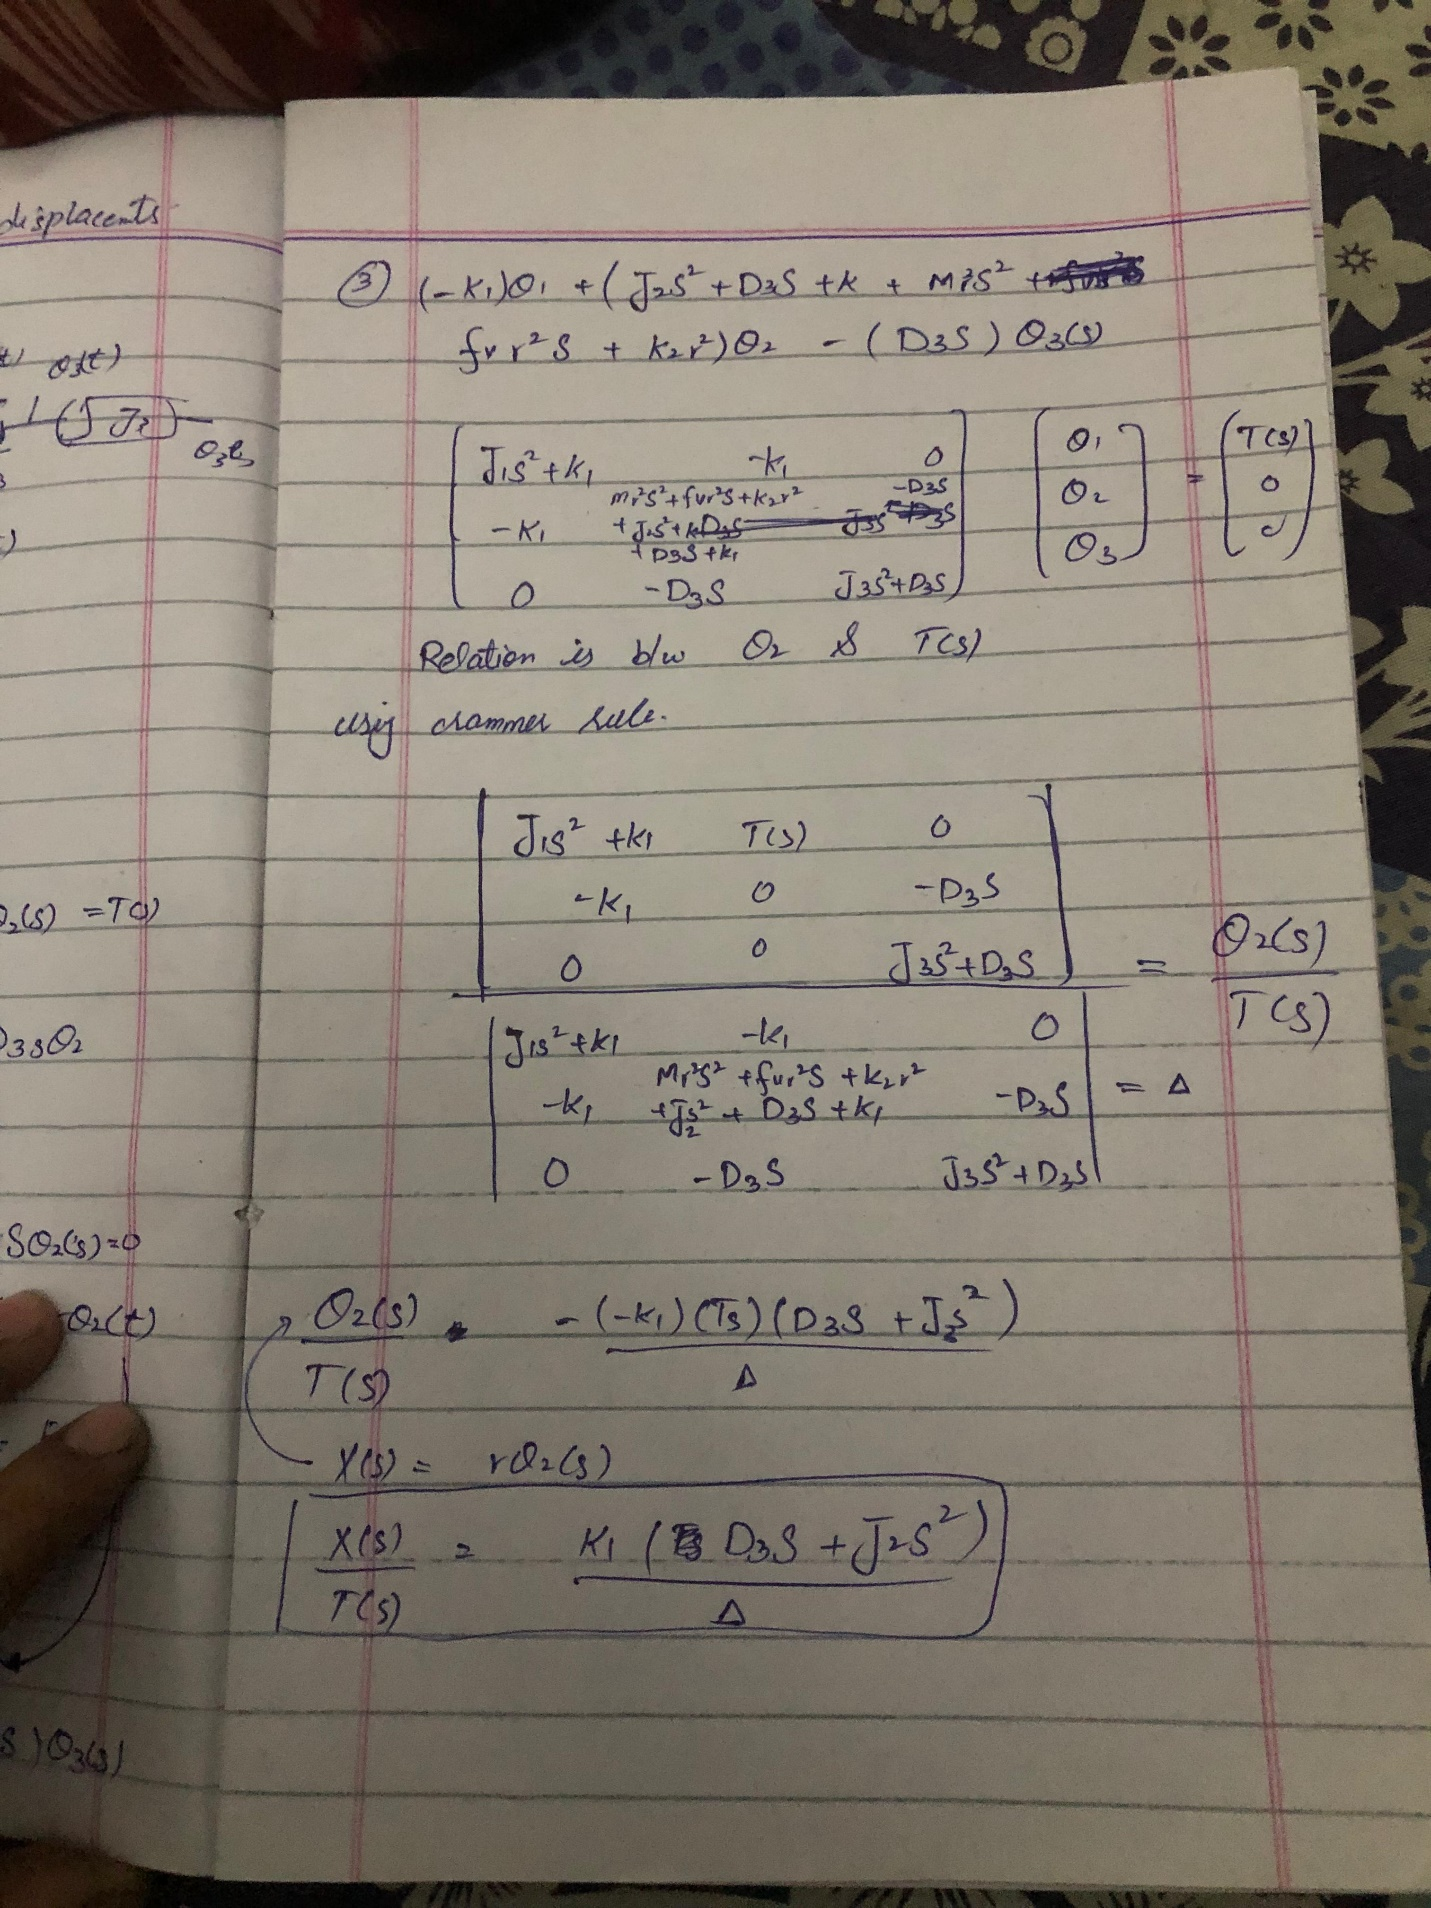 displacents
θ3(t)
J2
θ3(t)
θ2(s) = T(s)
D3sθ2
Sθ2(s)=0
θ2(t)
s)θ3(s)
③ (-K1)θ1 + (J2S² + D3S + K + Mr²S² +
fv r² S + K2r²)θ2 - (D3S) θ3(s)
J1S²+K1 -K1 0 θ1 T(s)
Mr²S²+fvr²S+K2r² -D3S
-K1 +J2S²+ θ2 = 0
+D3S+K1
0 -D3S J3S²+D3S θ3 0
Relation is b/w θ2 & T(s)
using crammer rule.
J1S² +K1 T(s) 0
-K1 0 -D3S
0 0 J3S²+D3S = θ2(s)
T(s)
J1S²+K1 -K1 0
Mr²S² +fvr²S +K2r²
-K1 +J2S² + D3S +K1 -D3S = Δ
0 -D3S J3S²+D3S
θ2(s) -(-K1)(Ts)(D3S +J3S²)
T(s) Δ
X(s) = rθ2(s)
X(s) = K1 ( D3S + J2S²)
T(s) Δ